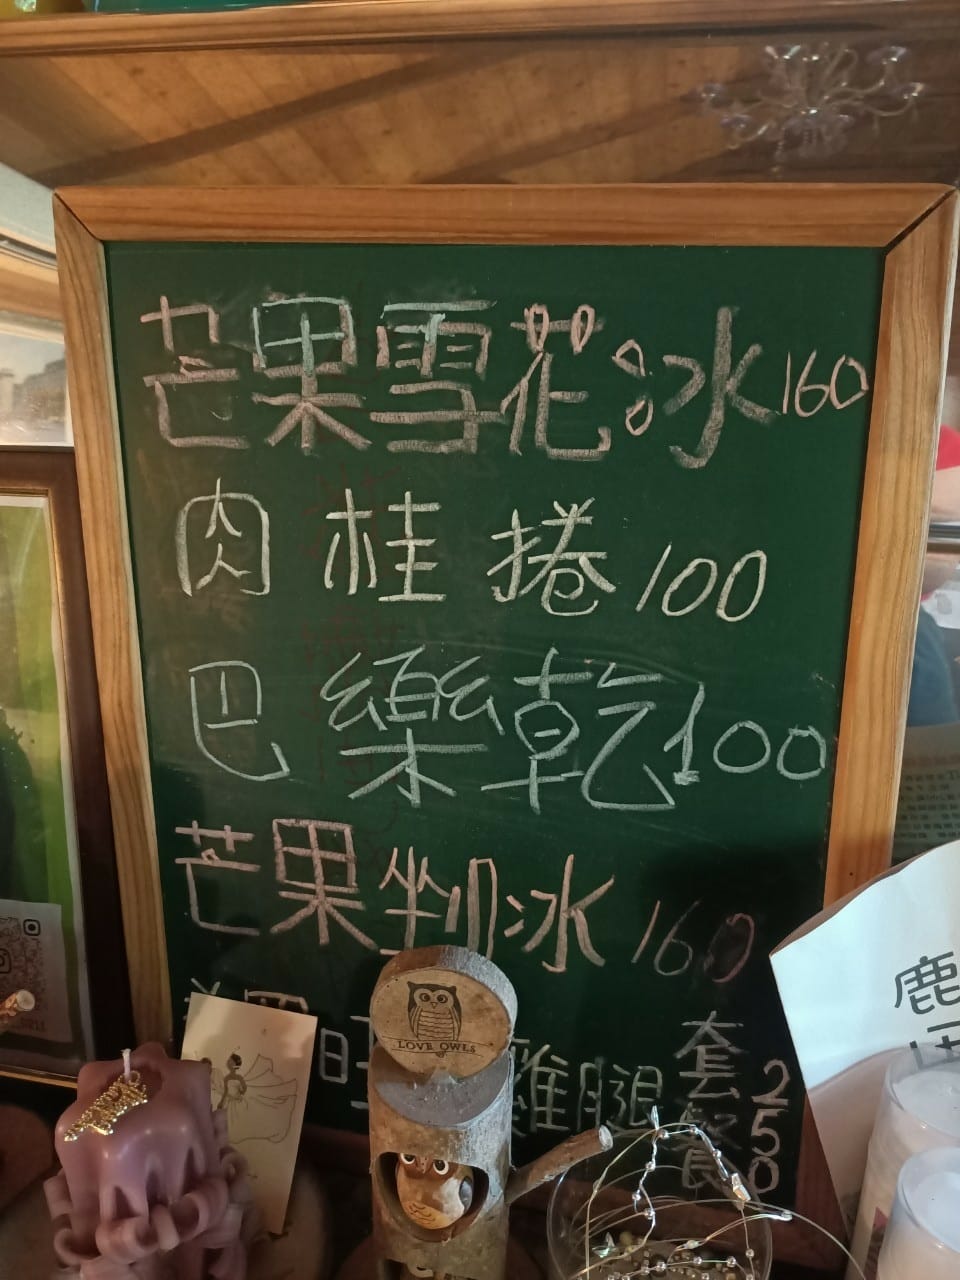 芒果雪花冰160
肉桂捲100
巴樂乾100
芒果剉冰160
雞腿套餐250
LOVE OWLS
鹿